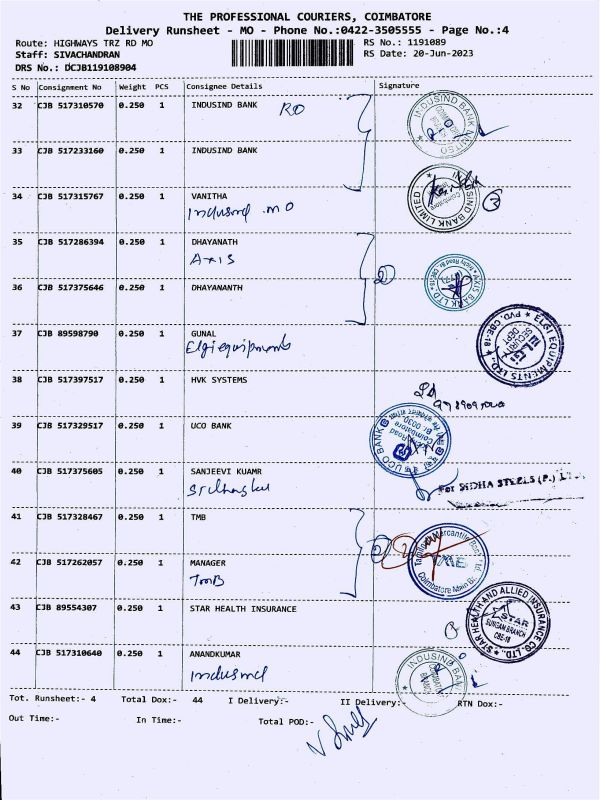 THE PROFESSIONAL COURIERS, COIMBATORE
Delivery Runsheet - MO - Phone No.:0422-3505555 - Page No.:4
Route: HIGHWAYS TRZ RD MO RS No.: 1191089
Staff: SIVACHANDRAN RS Date: 20-Jun-2023
DRS No.: DCJB119108904
S No Consignment No Weight PCS Consignee Details Signature
32 CJB 517310570 0.250 1 INDUSIND BANK RO
INDUSIND BANK LIMITED
33 CJB 517233160 0.250 1 INDUSIND BANK
34 CJB 517315767 0.250 1 VANITHA
Indusind MO
INDUSIND BANK LIMITED
35 CJB 517286394 0.250 1 DHAYANATH
AXIS
AXIS BANK LTD
2
36 CJB 517375646 0.250 1 DHAYANANTH
37 CJB 89598790 0.250 1 GUNAL
Elgi equipments
ELGI EQUIPMENTS LTD. PVD. CBE-18
ELGi
SECURITY DEPT
38 CJB 517397517 0.250 1 HVK SYSTEMS
39 CJB 517329517 0.250 1 UCO BANK
UCO BANK
Coimbatore
40 CJB 517375605 0.250 1 SANJEEVI KUAMR
For SIDHA STEELS (P.)
41 CJB 517328467 0.250 1 TMB
2
Tamilnad Mercantile Bank Ltd.
TMB
Coimbatore Main Br.
42 CJB 517262057 0.250 1 MANAGER
TMB
43 CJB 89554307 0.250 1 STAR HEALTH INSURANCE
STAR HEALTH AND ALLIED INSURANCE CO. LTD.
STAR
SUNGAM BRANCH
CBE-18
44 CJB 517310640 0.250 1 ANANDKUMAR
Indusind
INDUSIND BANK
Tot. Runsheet:- 4 Total Dox:- 44 I Delivery:- II Delivery:- RTN Dox:-
Out Time:- In Time:- Total POD:-